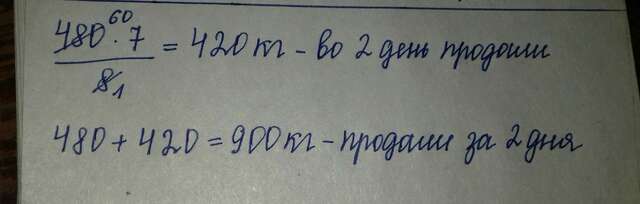 60
480 · 7
/ 8 1 = 420 кг – во 2 день продали
480 + 420 = 900 кг – продали за 2 дня